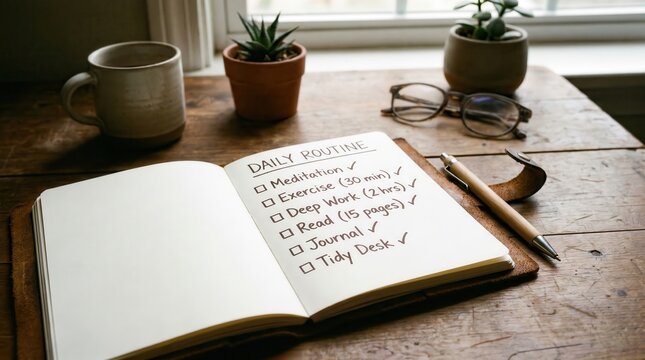 DAILY ROUTINE
☐ Meditation ✓
☐ Exercise (30 min) ✓
☐ Deep Work (2 hrs) ✓
☐ Read (15 pages) ✓
☐ Journal ✓
☐ Tidy Desk ✓